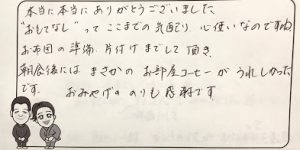 本当に本当にありがとうございました
"おもてなし"ってここまでの気配り心使いなのですね
お布団の準備、片付けまでして頂き
朝食後にはまさかのお部屋コーヒーがうれしかった
です。 おみやげののりも感謝です